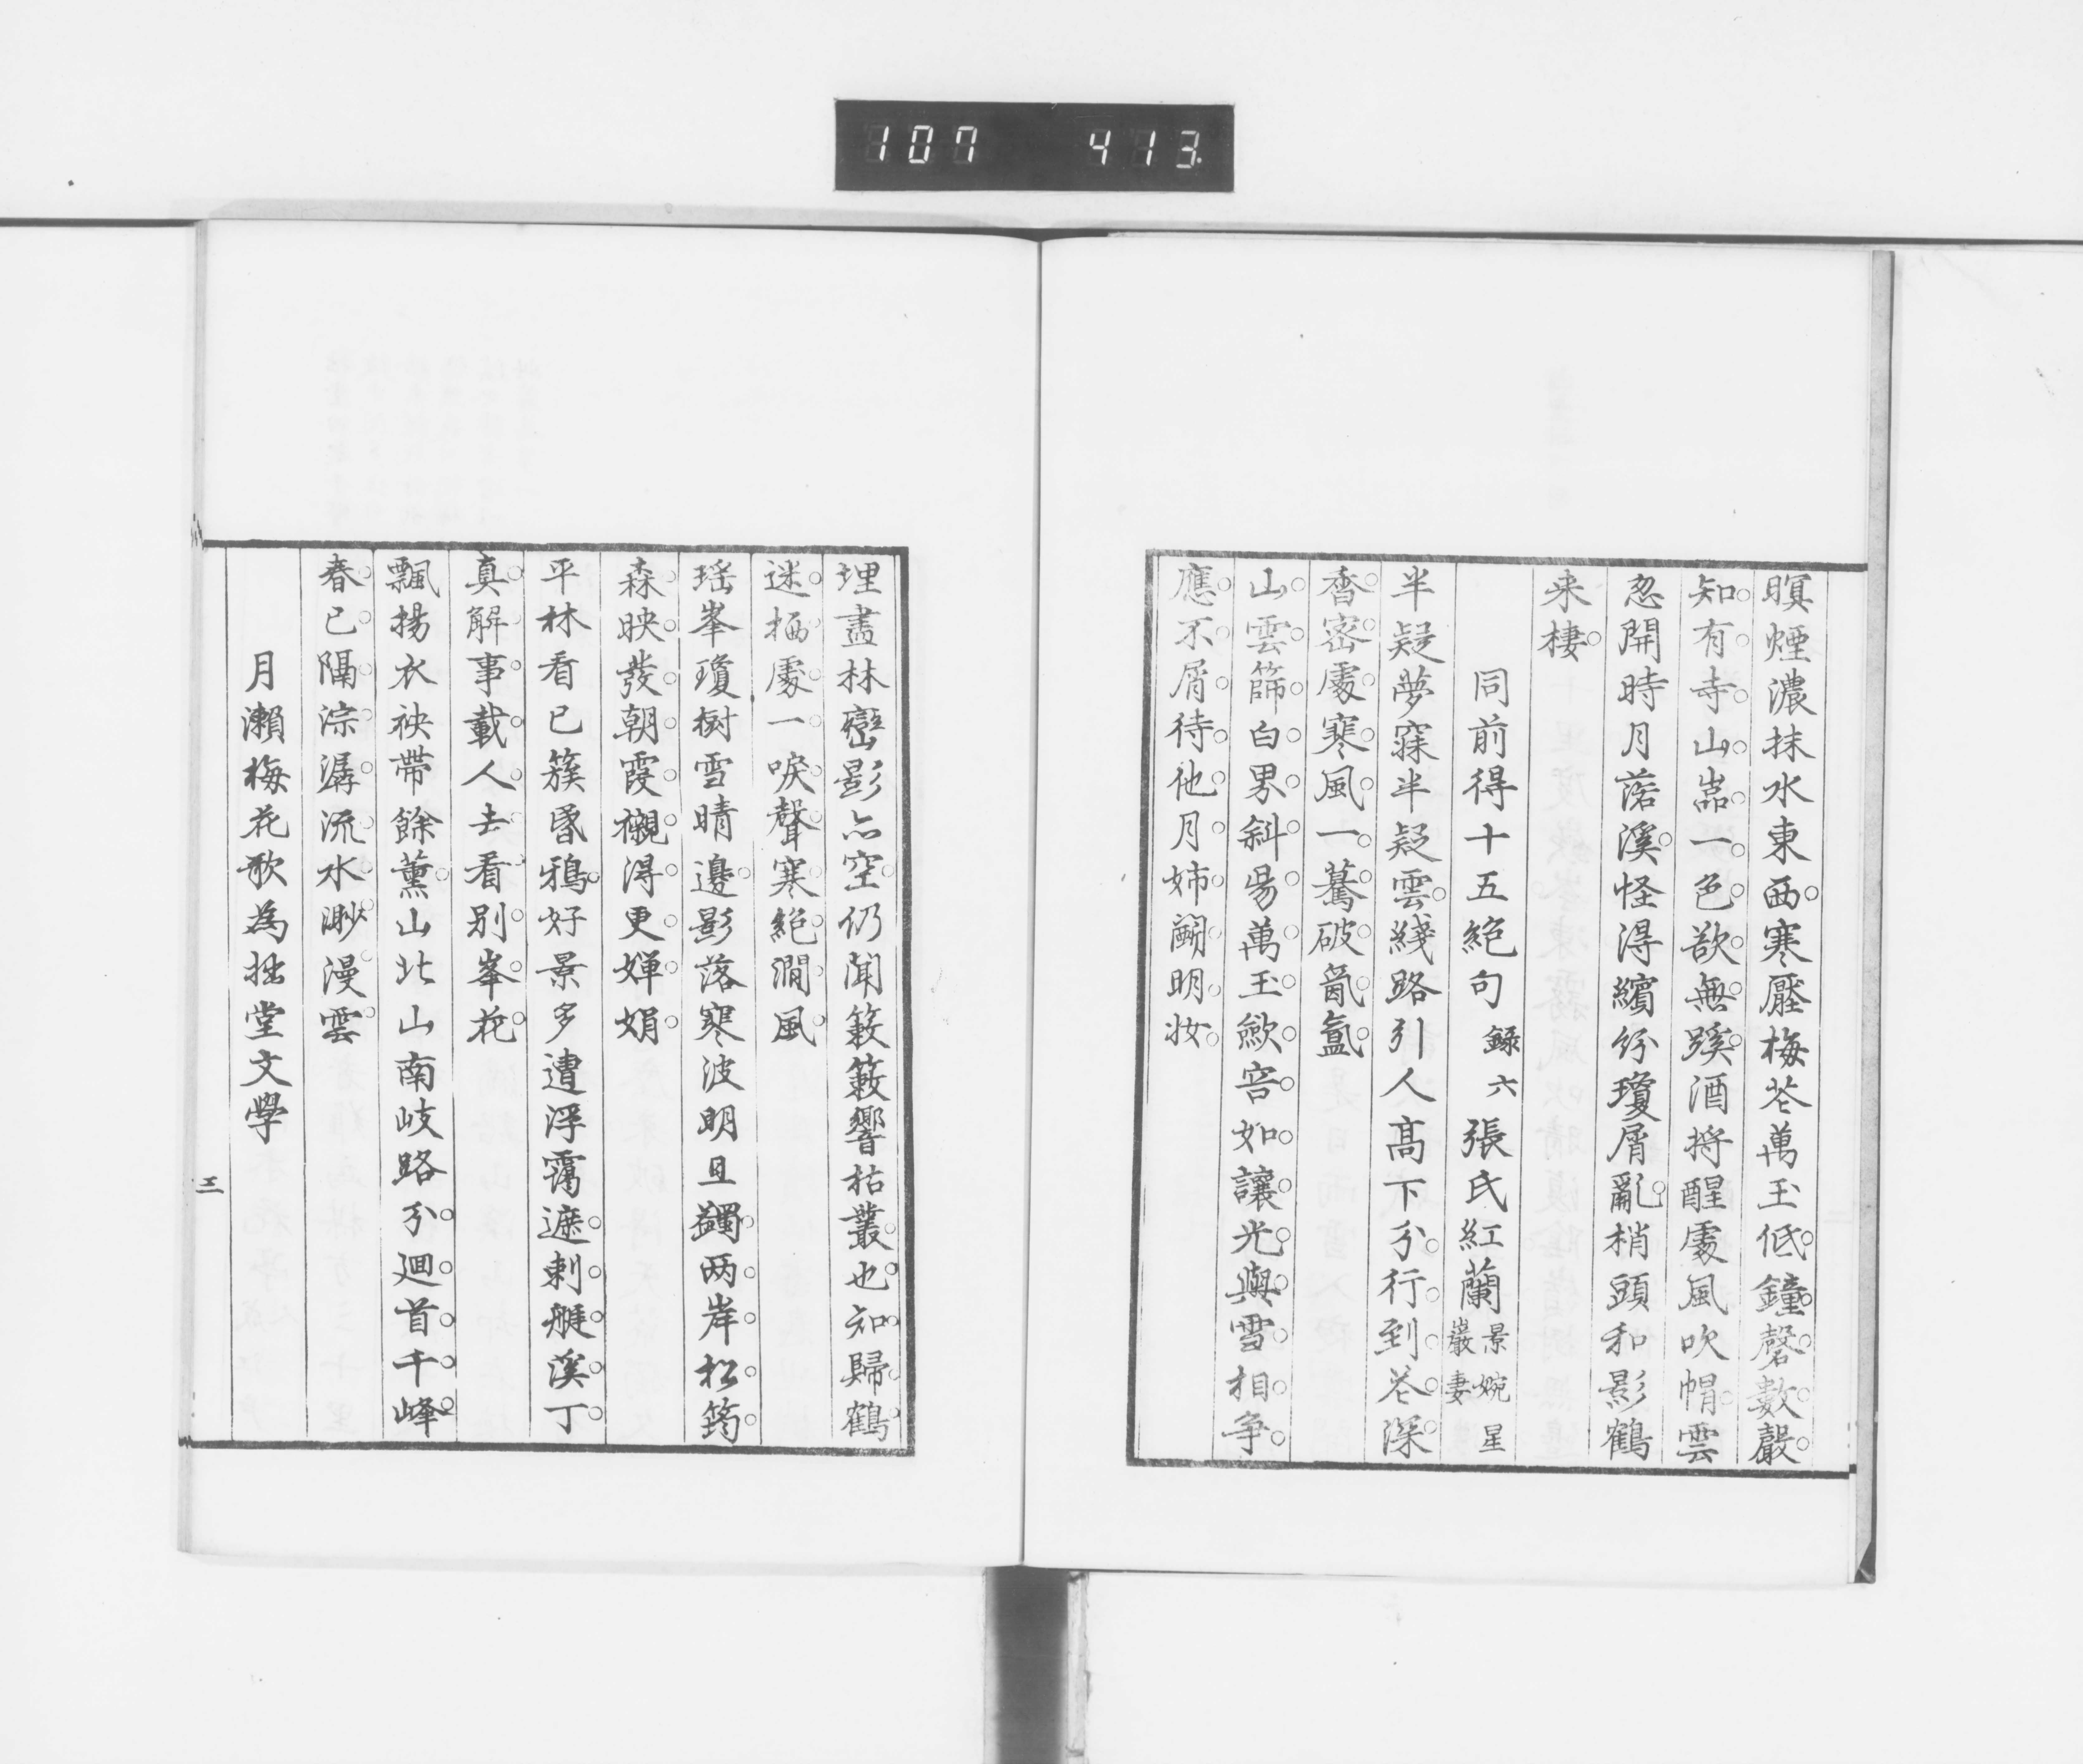 107 413
暝煙濃抹水東西寒壓梅花萬玉低鐘磬數聲
知有寺山嵓一色欲無蹊酒將醒處風吹帽雲
忽開時月落溪怪得繽紛瓊屑亂梢頭和影鶴
来棲
同前得十五絕句錄六張氏紅蘭景婉星巖妻
半疑夢寐半疑雲綫路引人高下分行到花深
香密處寒風一驀破氤氳
山雲篩白界斜陽萬玉歛容如讓光與雪相爭
應不屑待他月姉鬭明妝
埋盡林巒影亦空仍聞簌簌響枯叢也知歸鶴
迷栖處一唳聲寒絕澗風
瑶峯瓊樹雪晴邊影落寒波明且蠲两岸松筠
森映發朝霞襯得更嬋娟
平林看已簇昏鴉好景多遭浮靄遮刺艇溪丁
真解事載人去看別峯花
飄揚衣袂帶餘薰山北山南岐路分迴首千峰
春已隔淙潺流水渺漫雲
月瀨梅花歌為拙堂文學
三